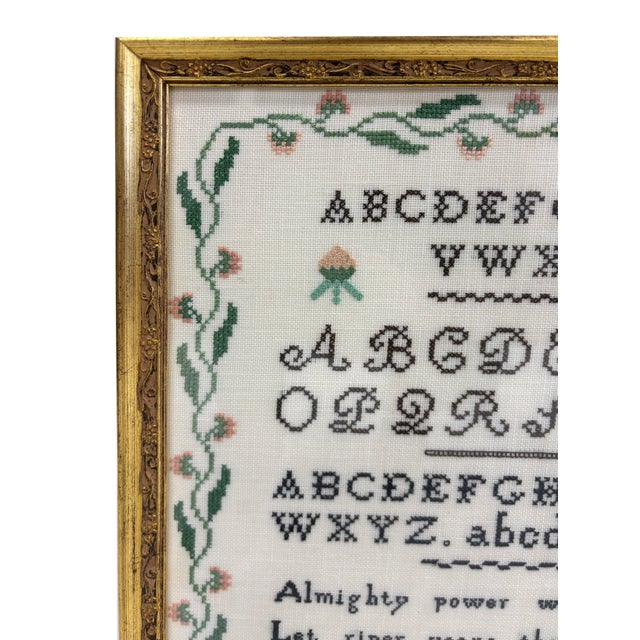 ABCDEF
VWX
ABCD
OPQR
ABCDEFGH
WXYZ. abcd
Almighty power
Let riper years